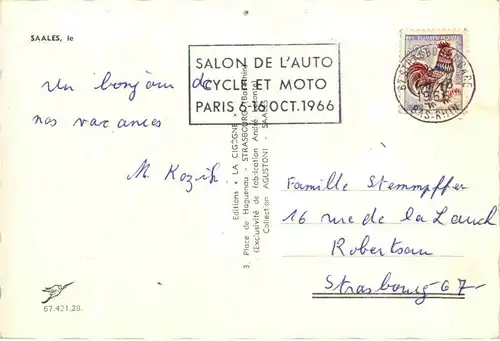 SAALES, le
SALON DE L'AUTO
CYCLE ET MOTO
PARIS 6-16 OCT. 1966
67-STRASBOURG-GARE
BAS-RHIN
Un bonjour de
nos vacances
M. Kozik
Editions « LA CIGOGNE »
3, Place de Haguenau - STRASBOURG (Bas-Rhin)
(Exclusivité de fabrication André Leconte)
Collection AGUSTONI - SAALES
Famille Stemmpffer
16 rue de la Lauch
Robertsau
Strasbourg 67-
67.421.28.